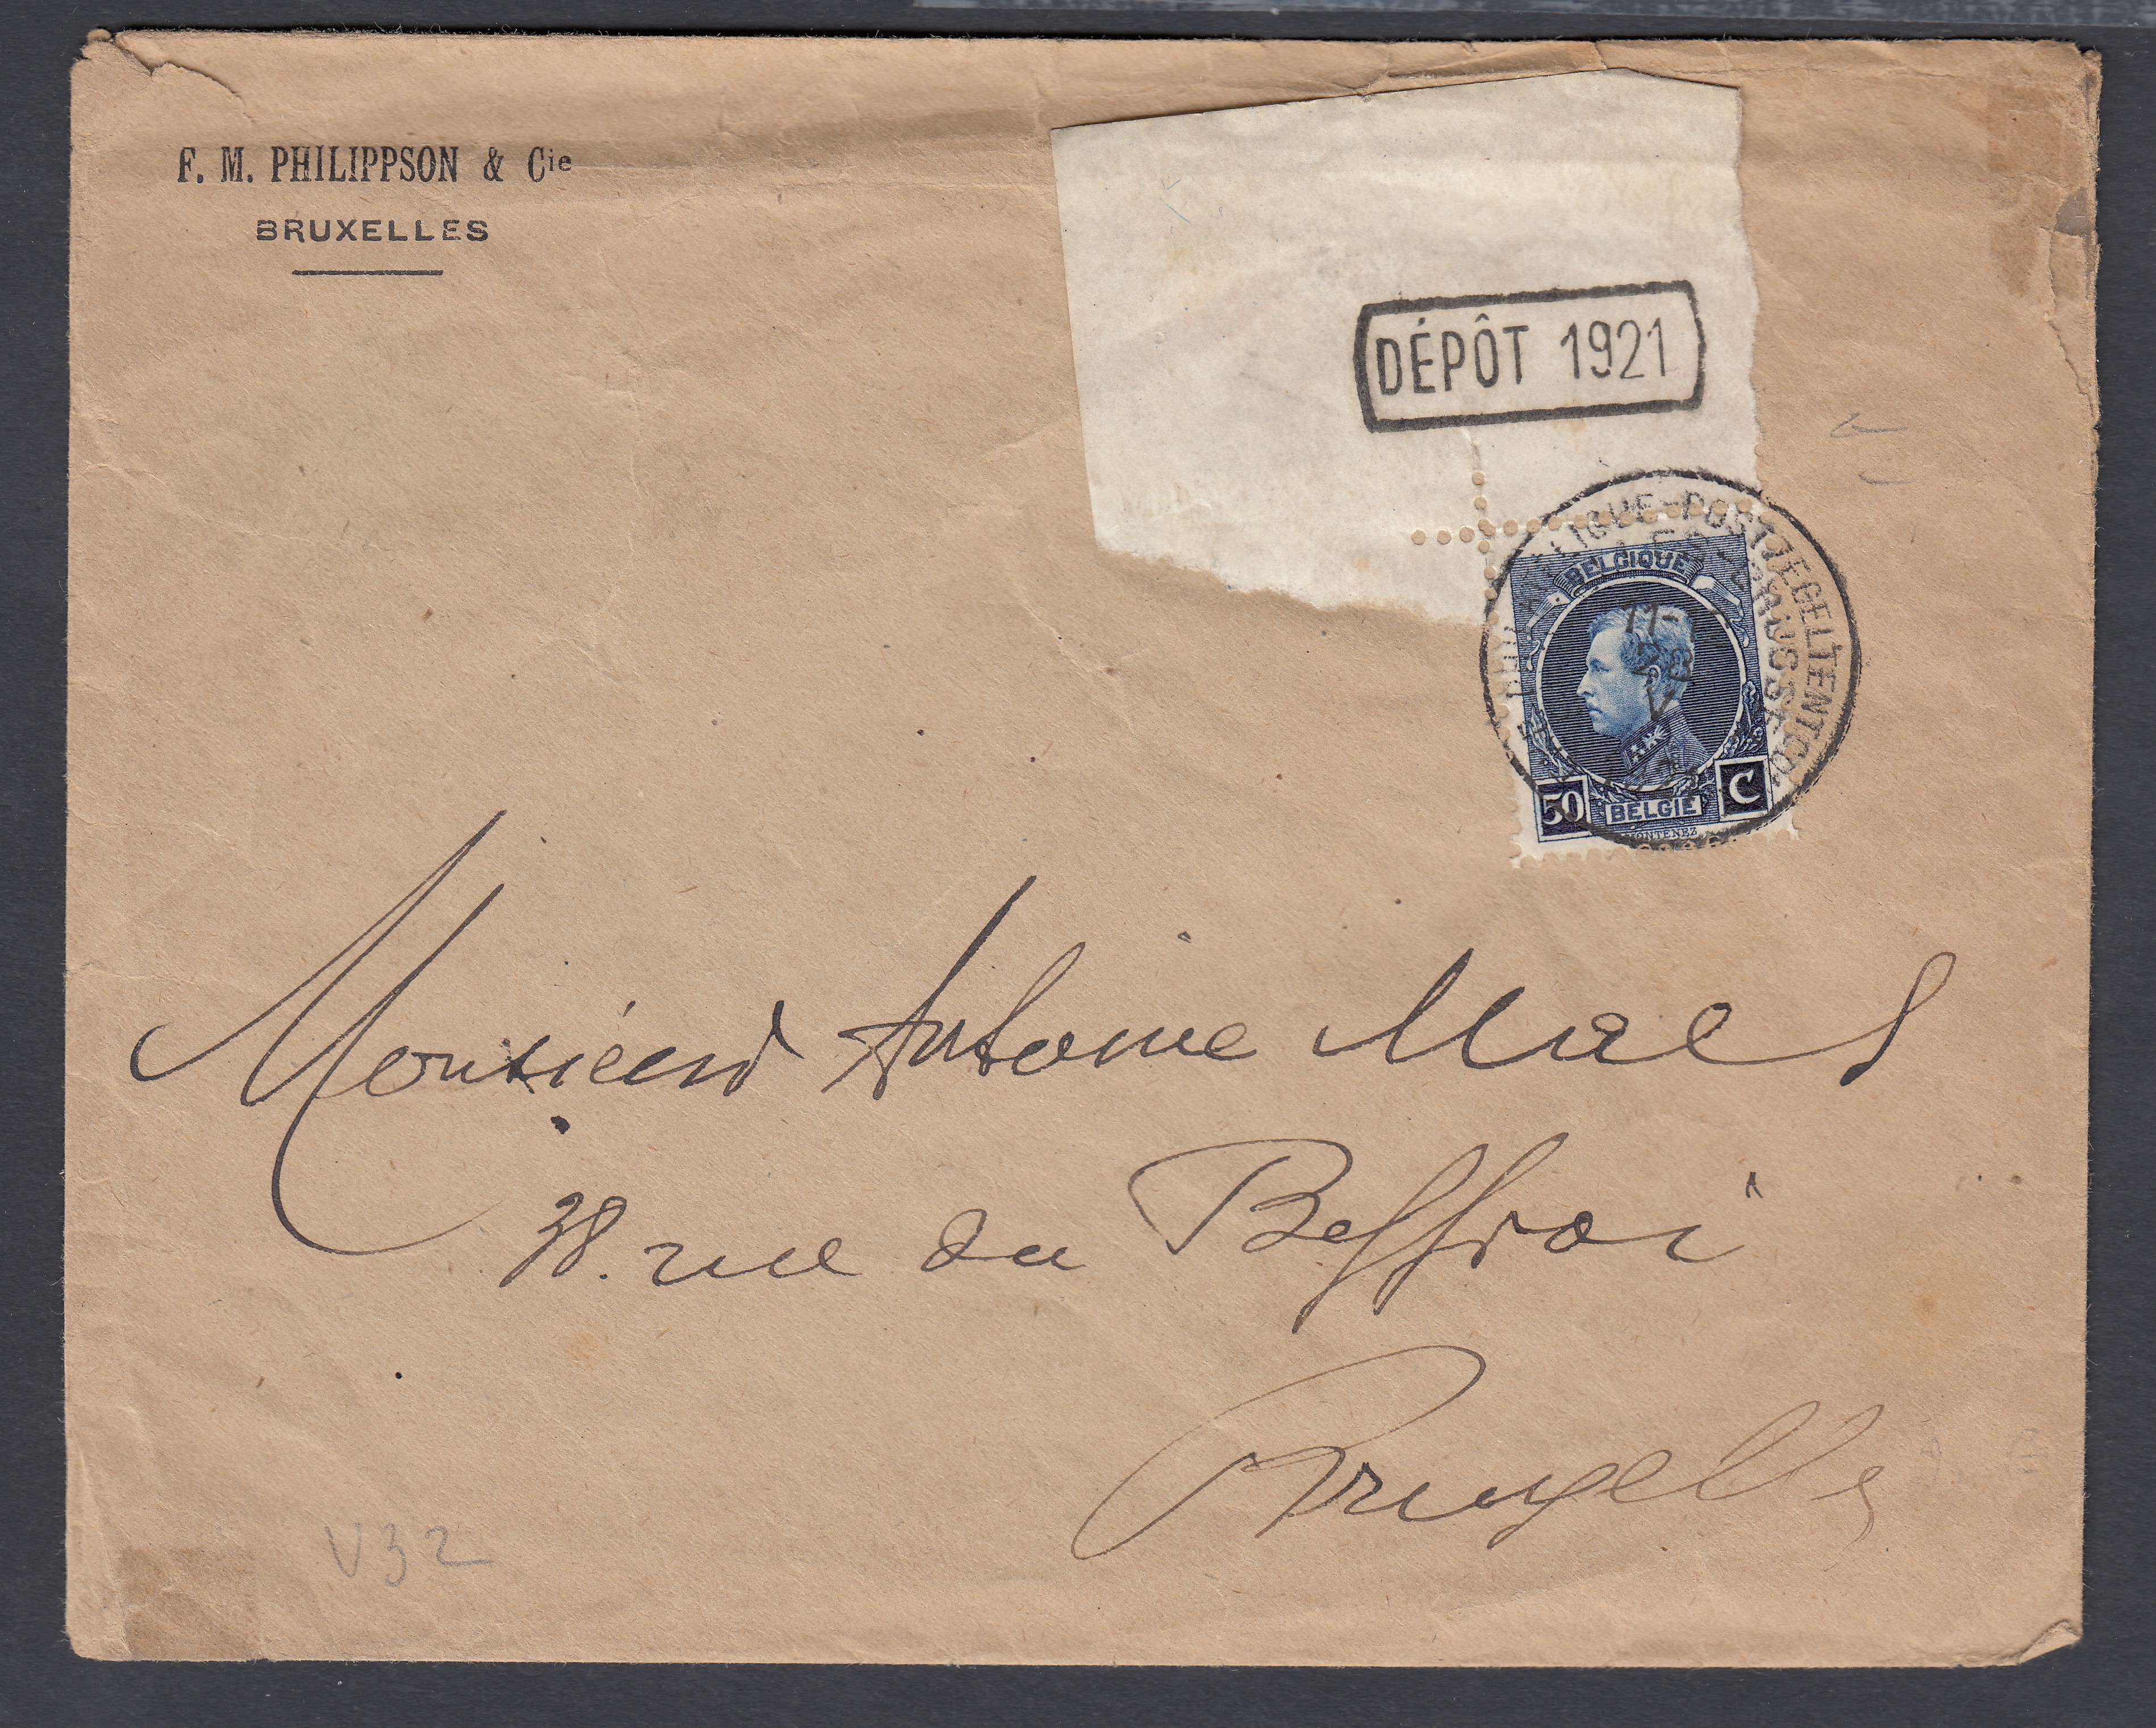 F. M. PHILIPPSON & Cie
BRUXELLES
DÉPÔT 1921
BELGIQUE
11-
28
V
50 BELGIË C
MONTENEZ
Monsieur Antoine Maes
38. rue du Beffroi
Bruxelles
V32